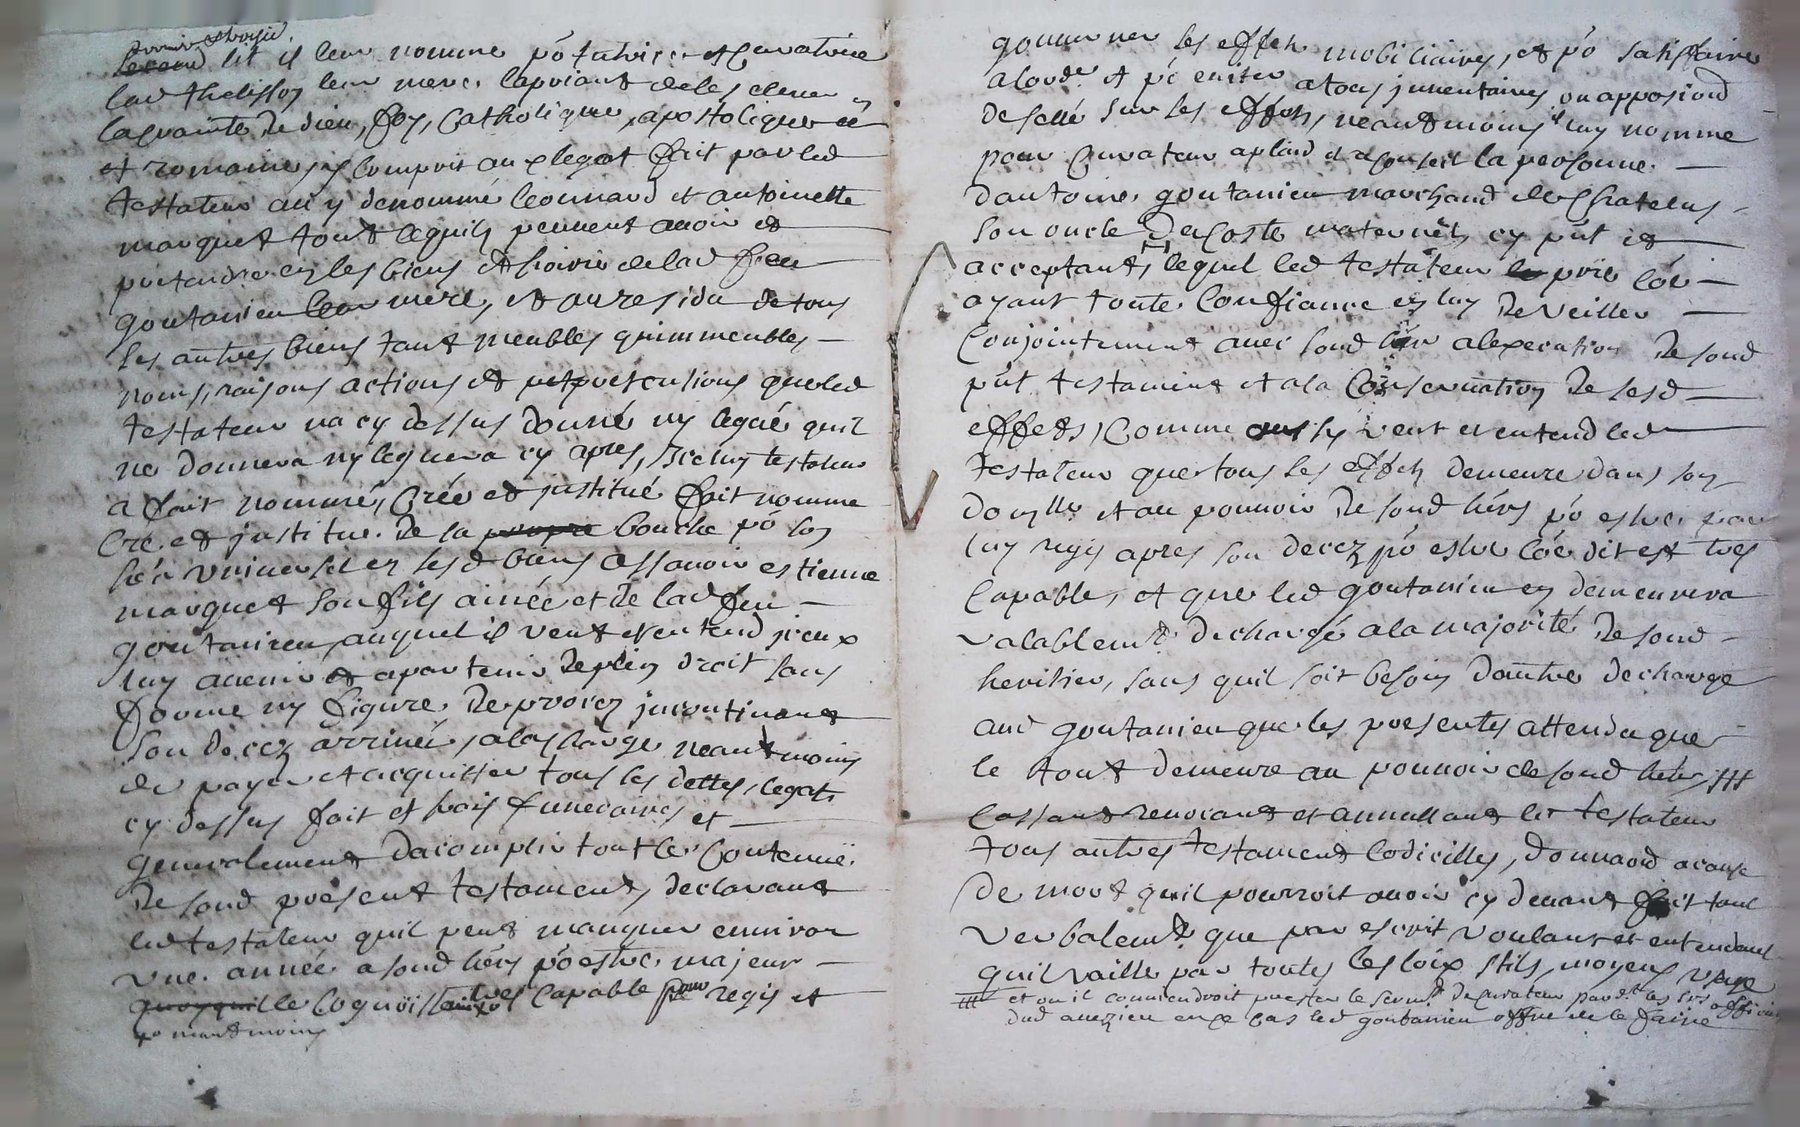 premier et troisie.
second lit il leur nomme po tutrice et Curatrice
lad thelisson leur mere, lapriant de les elever en
la crainte de dieu, foy, Catholique, apostolique
et romaine, y Compris aux legat fait par led
testateur au y denommé leonnard et antoinette
marquet tout ce quils peuvent avoir et
pretendre en les biens et hoirie de lad feu
goutanieu leur mere, et au residu de tous
les autres biens tant meubles quimmeubles
noms, raisons actions et pretentions que led
testateur na cy dessus donné ny legué quil
ne donnera ny leguera cy apres, Iceluy testateur
a fait nommé, Créé et institué fait nomme
Cré et institue de sa propre bouche po son
her universel en sesd biens assavoir estienne
marquet son fils ainée et de lad feu
goutanieu, auquel il veut et entend iceux
luy avenir et apartenir de plein droit sans
forme ny figure de proces incontinant
son decez arrivée, a la charge neantmoins
de payer et acquitter tous les dettes, legats
cy dessus fait et frais funeraires et
generalement dacomplir tout le Contenue
de sond present testament, declarant
led testateur quil peut manquer environ
une année a sond hers po estre majeur
quoyquil le Cognoissant tres Capable pour regir et
po neantmoins
gouverner les effets mobiliaires, et po satisffaire
a lordce et po eviter a tous inventaires ou apposiond
de sellé sur les effets, neantmoins il luy nomme
pour Curateur aplaid et a conseil la personne
dantoine goutanieu marchand de Chatelus
son oncle de Coste maternel, cy pnt et
acceptant, lequel led testateur le prie Cõe
ayant toute Confiance en luy de veiller
Conjointement avec sond her alexecution de sond
pnt testament et a la Conservation de sesd
effets, Comme aussy veut et entend led
testateur que tous les effets demeure dans son
domlle et au pouvoir de sond hers po estre par
luy regis apres son decez po estre Cõe dit est tres
Capable, et que led goutanieu en demeurera
valablemt dechargé a la majorité de sond
heritier, sans quil soit besoin dautre decharge
aud goutanieu que les presentes attendu que
le tout demeure au pouvoir de sond heter, ///
Cassant revocant et annullant led testateur
tous autres testament Codicilles, donnaond a cause
de mort quil pourroit avoir cy devant fait tant
verbalemt que par escrit voulant et entendant
quil vaille par toutes les loix stils, moyens usage
/// et ou il conviendroit prester le sermt de Curateur pard.t les srs officiers
dud auezieu en ce cas led goutanieu offre de le faire